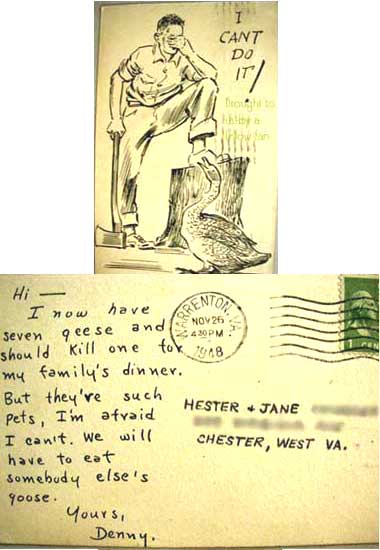 I
CAN'T
DO
IT!
Brought to
Hi —
I now have
seven geese and
should kill one for
my family's dinner.
But they're such
pets, I'm afraid
I can't. We will
have to eat
somebody else's
goose.
Yours,
Denny.
WARRENTON, VA.
NOV 26
4 30 PM
1948
HESTER & JANE
CHESTER, WEST VA.